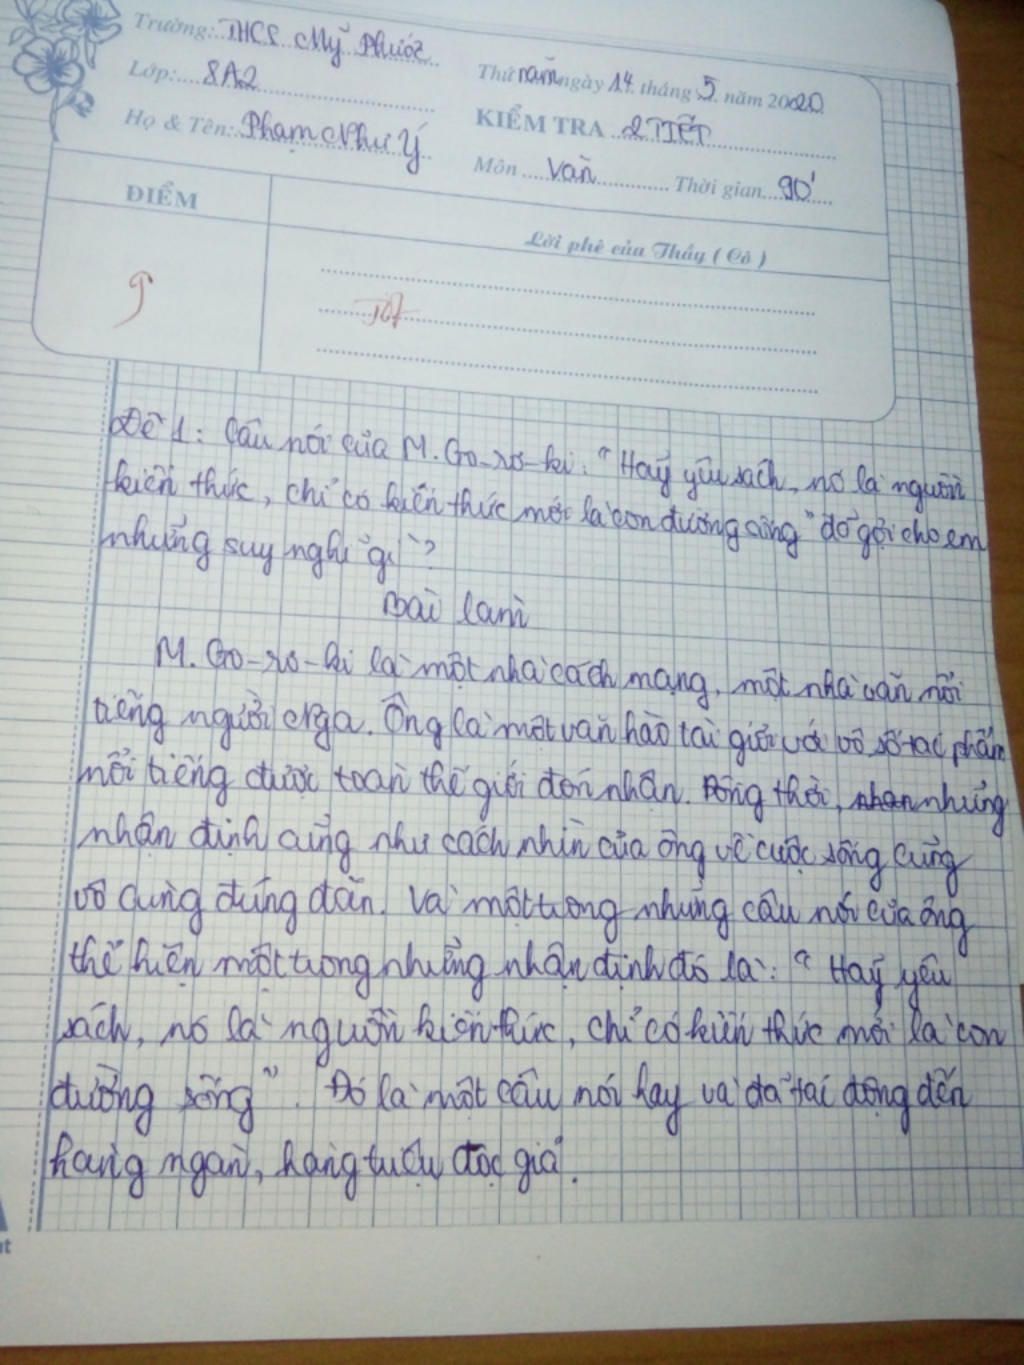 Trường: THCS Mỹ Phước
Thứ năm ngày 14 tháng 5 năm 2020
Lớp: 8A2
KIỂM TRA 2 TIẾT
Họ & Tên: Phạm Như Ý
Môn Văn Thời gian 90'
ĐIỂM
Lời phê của Thầy (Cô)
9
Tốt
Đề 1: Câu nói của M. Go-rơ-ki: "Hãy yêu sách, nó là nguồn
kiến thức, chỉ có kiến thức mới là con đường sống" đã gợi cho em
những suy nghĩ gì?
Bài làm
M. Go-rơ-ki là một nhà cách mạng, một nhà văn nổi
tiếng người Nga. Ông là một văn hào tài giỏi với vô số tác phẩm
nổi tiếng được toàn thế giới đón nhận. Đồng thời, những
nhận định cũng như cách nhìn của ông về cuộc sống cũng
vô cùng đúng đắn. Và một trong những câu nói của ông
thể hiện một trong những nhận định đó là: "Hãy yêu
sách, nó là nguồn kiến thức, chỉ có kiến thức mới là con
đường sống". Đó là một câu nói hay và đã tác động đến
hàng ngàn, hàng triệu đọc giả.